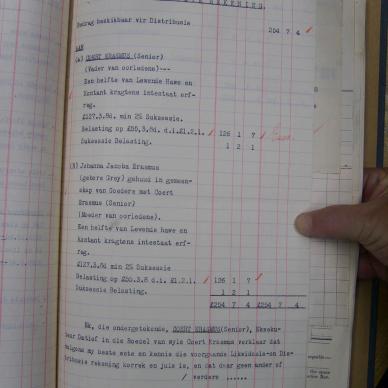 REKENING.
Bedrag beskikbaar vir Distribusie 254 7 4
AAN
(a) COERT ERASMUS (Senior)
(Vader van oorledene)---
Een helfte van Lewende Hawe en
Kontant kragtens intestaat erf-
rag.
£127.3.8d. min 2% Suksessie.
Belasting op £55.3.8d. d.i.£1.2.1. 126 1 7
Suksessie Belasting. 1 2 1
(b) Johanna Jacoba Erasmus
(gebore Grey) gehuud in gemeen-
skap van Goedere met Coert
Erasmus (Senior)
(Moeder van oorledene).
Een helfte van Lewende hawe en
kontant kragtens intestaat erf-
rag.
£127.3.8d min 2% Suksessie
Belasting op £55.3.8 d.i. £1.2.1. 126 1 7
Suksessie Belasting. 1 2 1
£254 7 4 £254 7 4
Ek, die ondergetekende, COERT ERASMUS(Senior), Ekseku-
teur Datief in die Boedel van wyle Coert Erasmus verklaar dat
volgens my beste wete en kennis die voorgaande Likwidasie-en Dis-
tribusie rekening korrek en juis is, en dat daar geen ander of
/ verdere ......